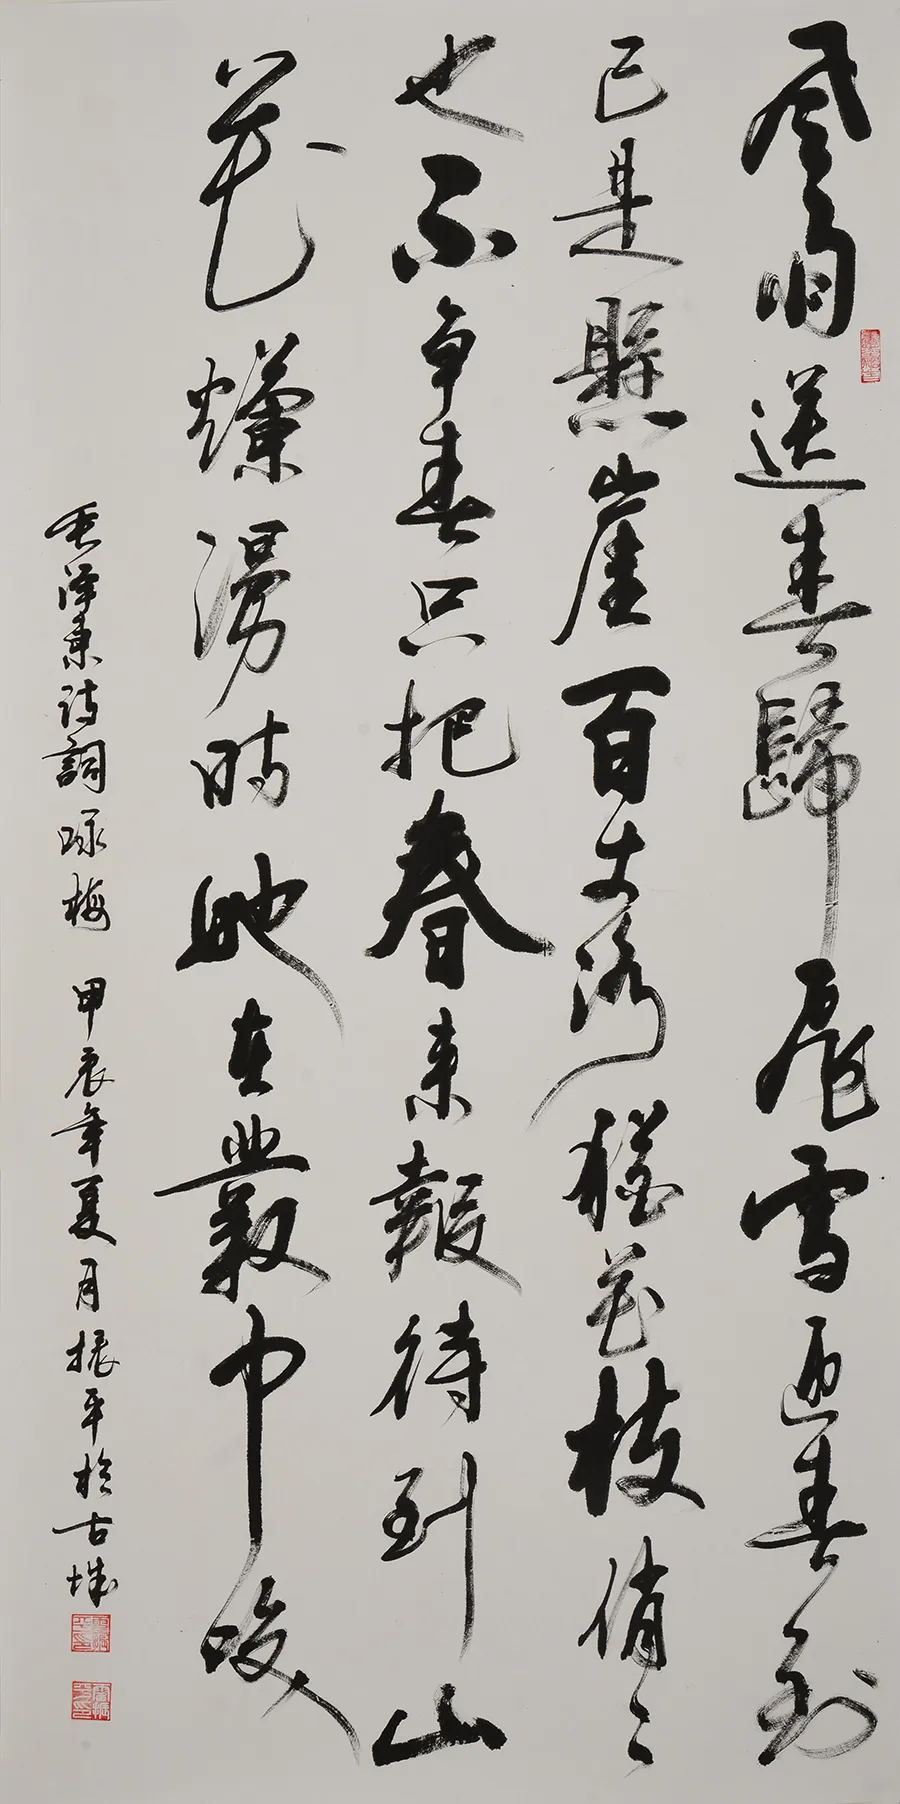 風雨送春歸飛雪迎春到
已是懸崖百丈冰猶花枝俏々
也不争春只把春来報待到山
花爛漫時她在叢中咲
毛泽東诗詞咏梅 甲辰年夏月振平於古城